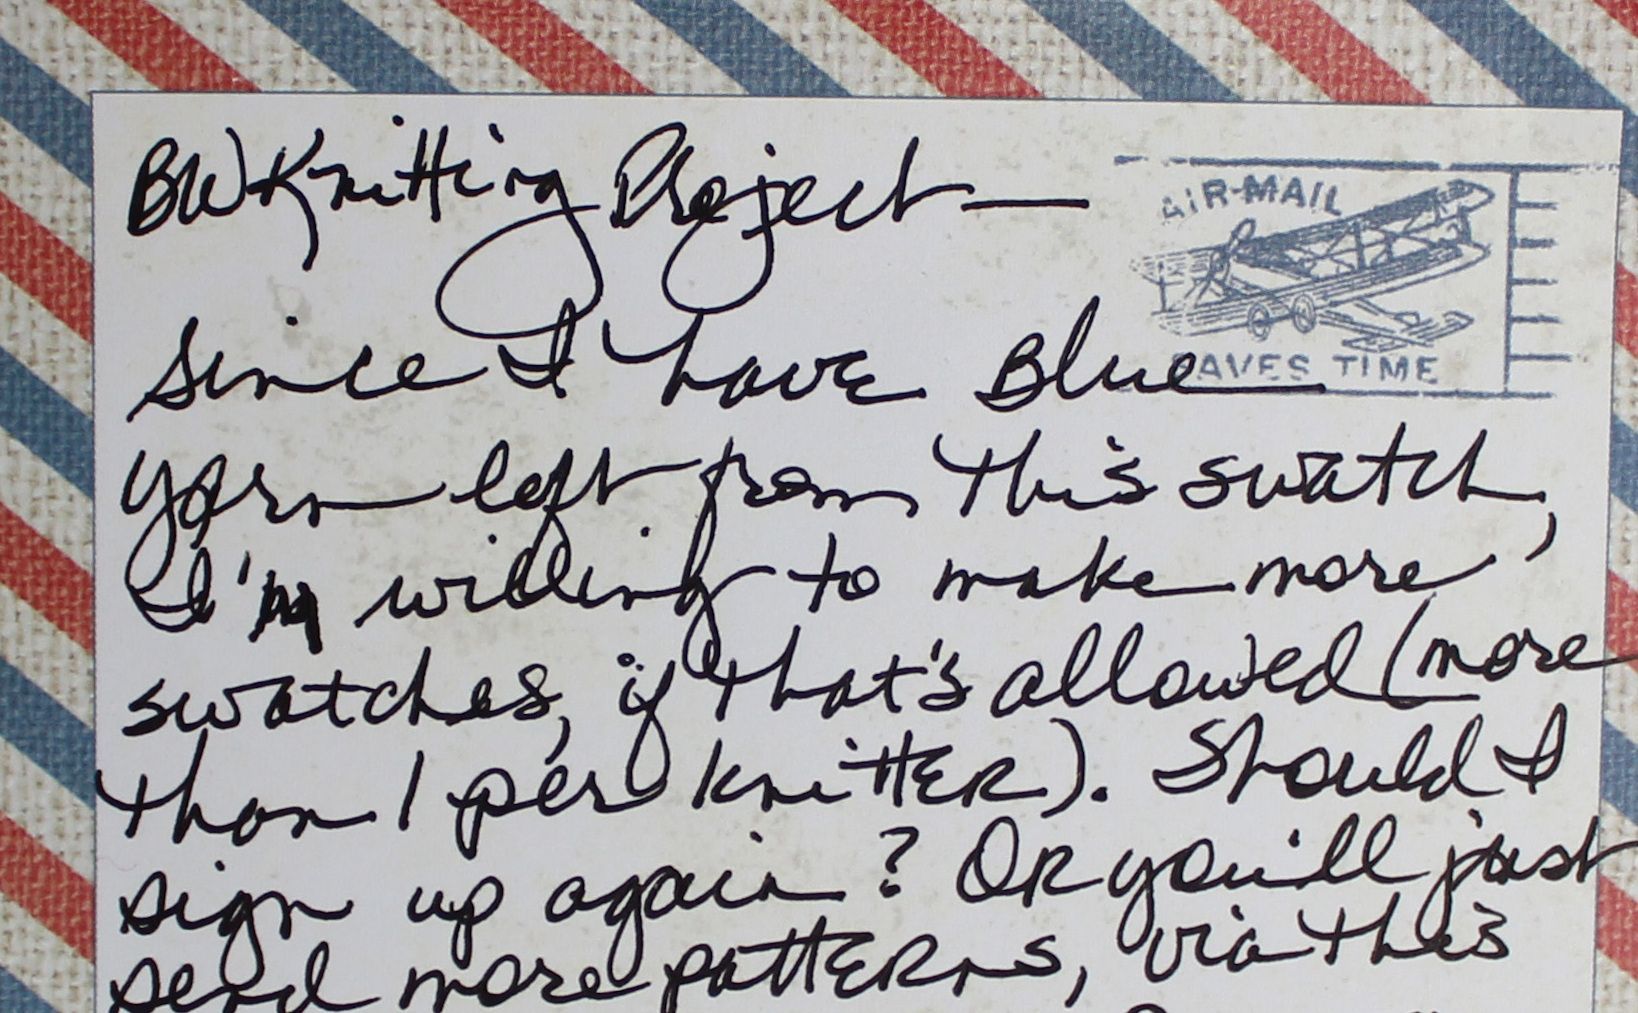 BW Knitting Project —
AIR-MAIL
SAVES TIME
Since I have Blue
yarn left from this swatch,
I'm willing to make more
swatches, if that's allowed (more
than 1 per knitter). Should I
sign up again? Or you'll just
send more patterns, via this